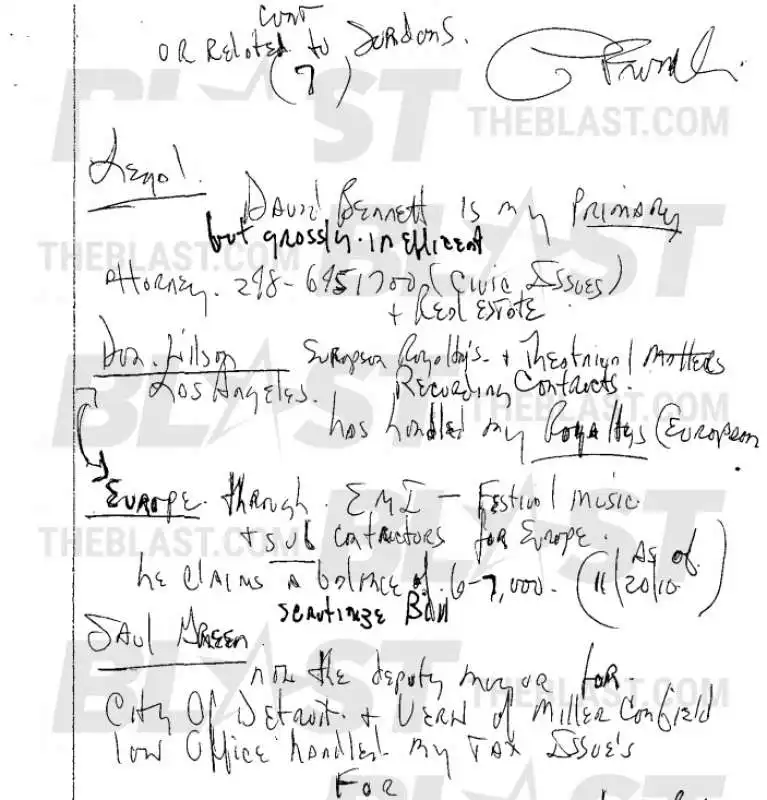 cont
OR Related to Jordans.
(7)
Legal.
David Bennett is my Primary
but grossly inefficent
Attorney. 248-6451700 (Civic Issues)
+ Real Estate
Don. Wilson European Royalty's + Theatrical Matters
Los Angeles. Recording Contracts.
has handled my Royaltys (European
Europe. through. EMI — Festival music
+ sub contractors for Europe.
he claims a balance of 6-7,000. (As of 11/20/10)
scrutinize Bill
Saul Green
now the deputy mayor for.
City Of Detroit. + Vern of Miller Canfield
law Office handled my Tax Issue's
For
BLAST
THEBLAST.COM